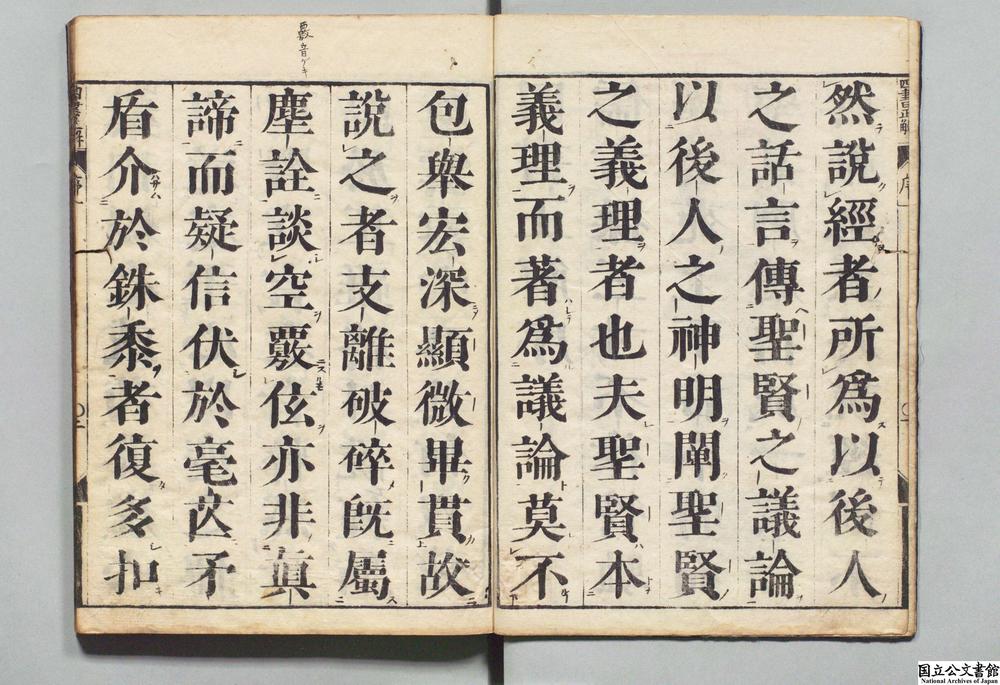 然說經者所爲以後人
之話言傳聖賢之議論
以後人之神明闡聖賢
之義理者也夫聖賢本
義理而著爲議論莫不
包舉宏深顯微畢貫故
說之者支離破碎旣屬
塵詮談空覈伭亦非眞
諦而疑信伏於毫芒矛
盾介於銖黍者復多扣
覈音ゲキ
四書正解
序
国立公文書館
National Archives of Japan